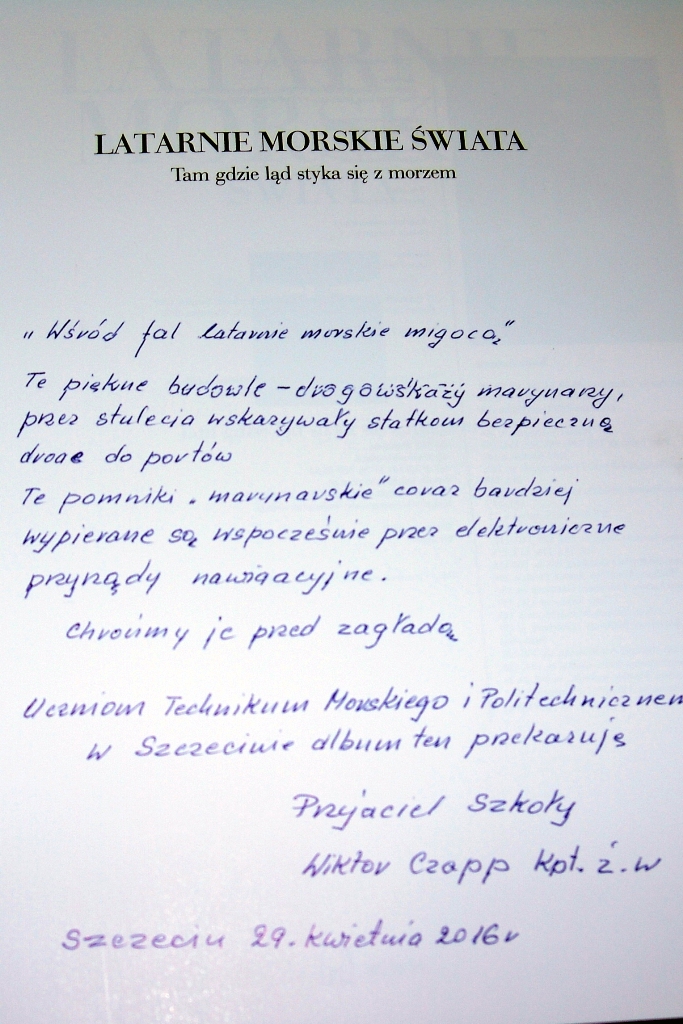 LATARNIE MORSKIE ŚWIATA
Tam gdzie ląd styka się z morzem
„Wśród fal latarnie morskie migocą"
Te piękne budowle – drogowskazy marynarzy,
przez stulecia wskazywały statkom bezpieczną
drogę do portów
Te pomniki „marynarskie" coraz bardziej
wypierane są wspocześnie przez elektroniczne
przyrządy nawigacyjne.
Chrońmy je przed zagładą
Uczniom Technikum Morskiego i Politechniczneg
w Szczecinie album ten przekazuję
Przyjaciel Szkoły
Wiktor Czapp kpt. ż.w
Szczecin 29. kwietnia 2016 r